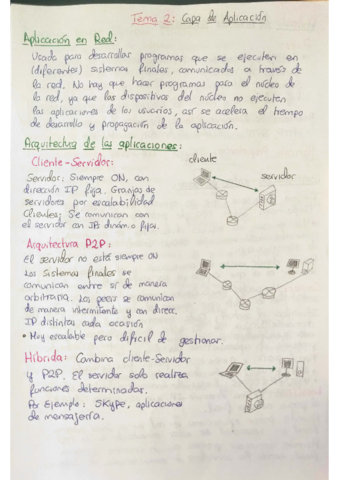 Tema 2: Capa de Aplicación
Aplicación en Red:
Usado para desarrollar programas que se ejecuten en
(diferentes) sistemas finales, comunicados a través de
la red. No hay que hacer programas para el núcleo de
la red, ya que los dispositivos del núcleo no ejecutan
las aplicaciones de los usuarios, así se acelera el tiempo
de desarrollo y propagación de la aplicación.
Arquitectura de las aplicaciones:
Cliente-Servidor:
Servidor: Siempre ON, con
dirección IP fija. Granjas de
servidores por escalabilidad
Clientes: Se comunican con
el servidor con IPs dinám. o fijas.
cliente
servidor
Arquitectura P2P:
El servidor no está siempre ON
Los sistemas finales se
comunican entre sí de manera
arbitraria. Los peers se comunican
de manera intermitente y con direcc.
IP distintas cada ocasión
• Muy escalable pero difícil de gestionar.
Híbrida: Combina cliente-servidor
y P2P. El servidor solo realiza
funciones determinadas.
Por Ejemplo: Skype, aplicaciones
de mensajería.